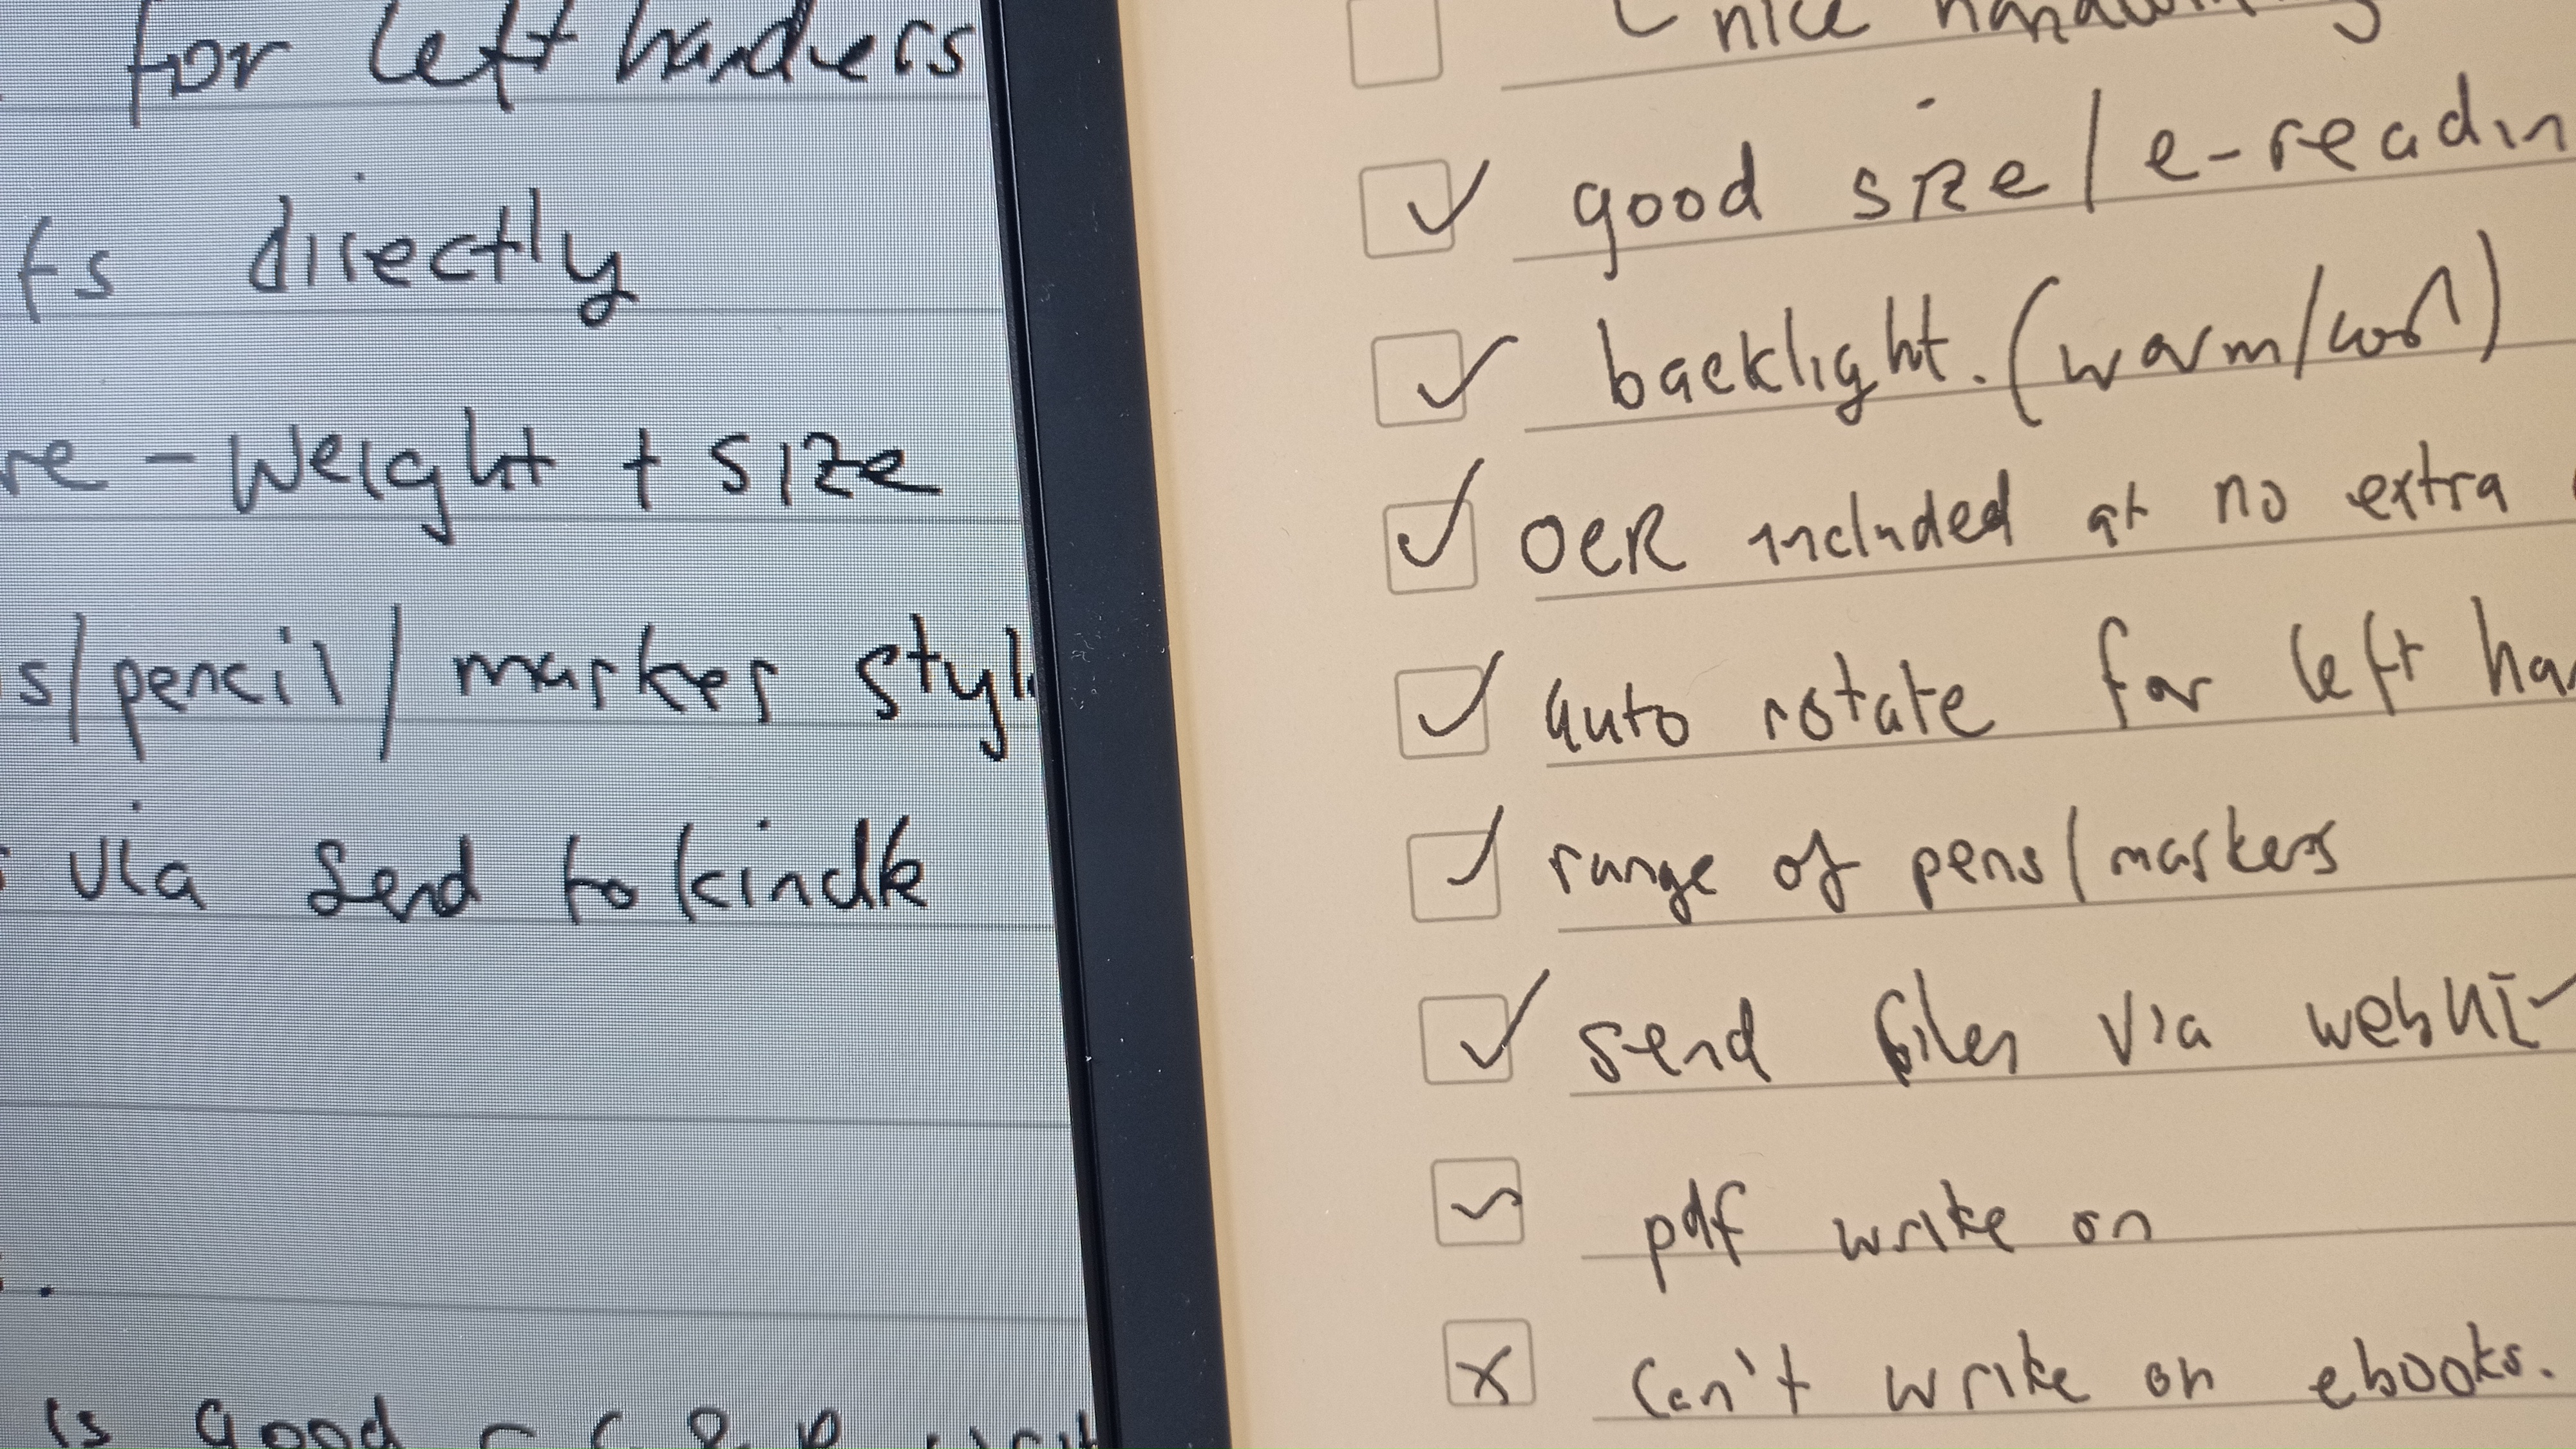 for left handers
fs directly
re - Weight + size
s/pencil/markers styl
via Send to kindle
is good
nice
good size/e-readin
backlight. (warm/cool)
OCR included at no extra
auto rotate for left ha
range of pens/markers
send files via webUI
pdf write on
x Can't write on ebooks.